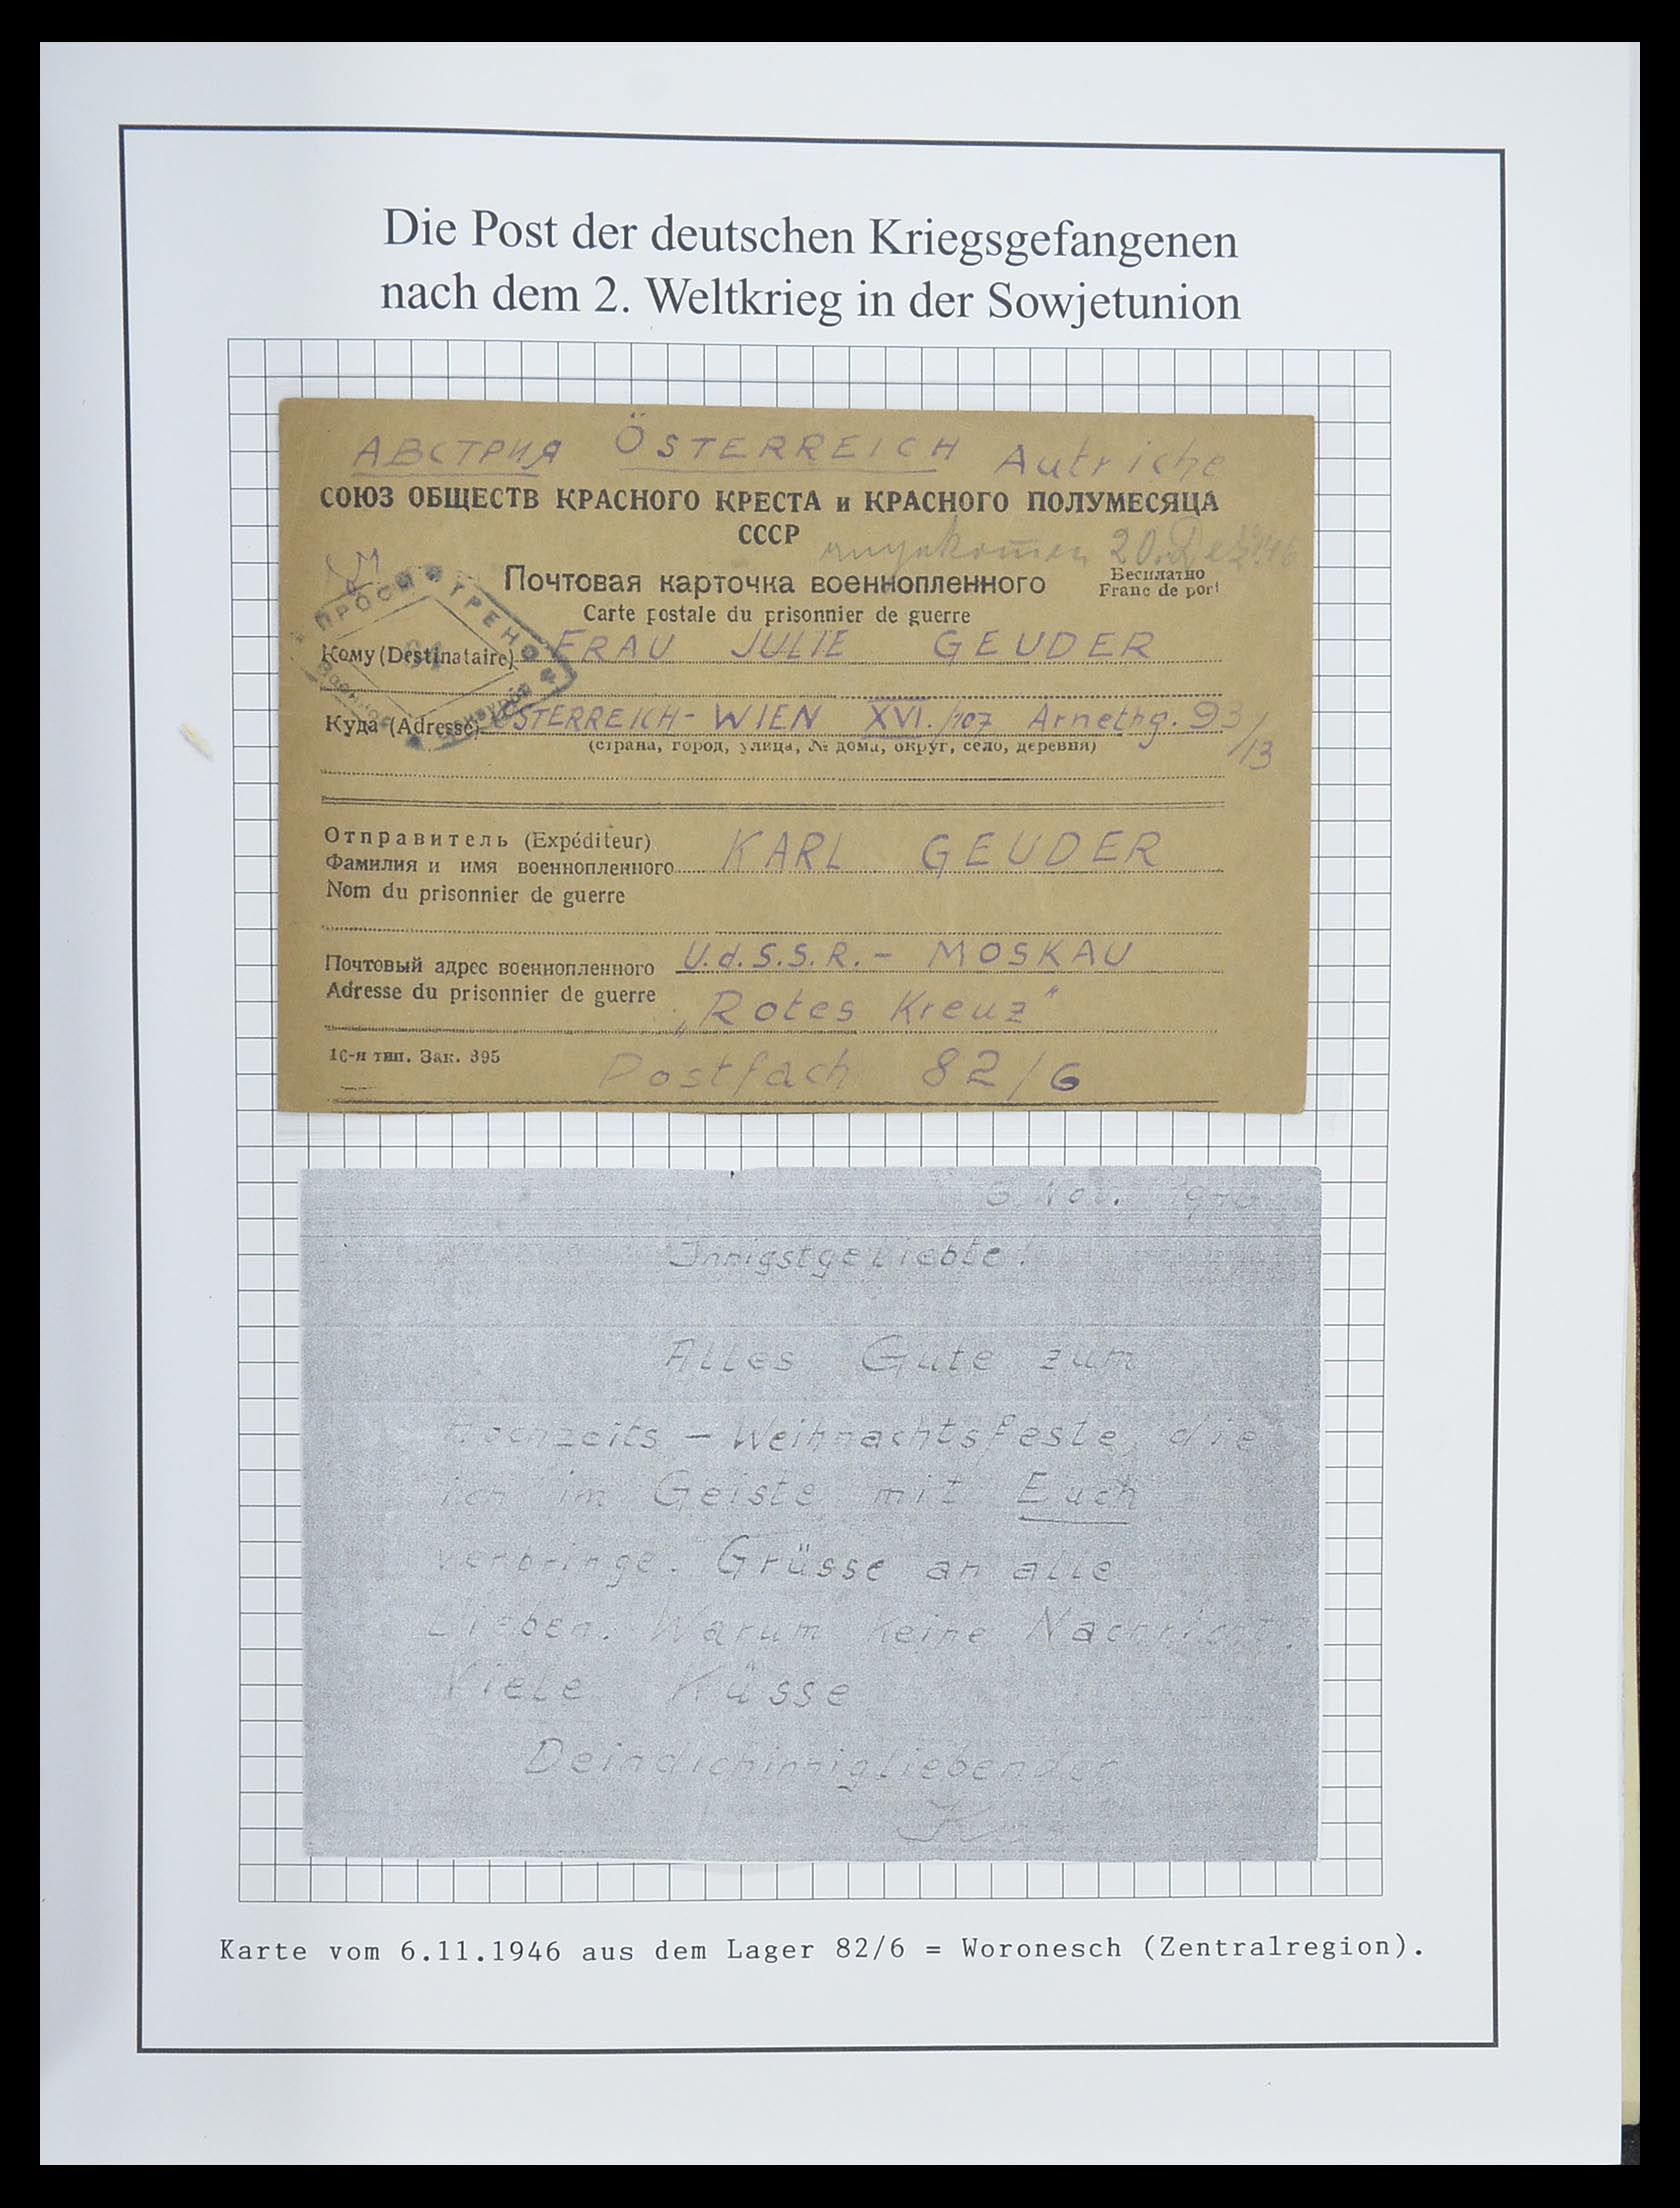 Die Post der deutschen Kriegsgefangenen
nach dem 2. Weltkrieg in der Sowjetunion
АВСТРИЯ ÖSTERREICH Autriche
СОЮЗ ОБЩЕСТВ КРАСНОГО КРЕСТА и КРАСНОГО ПОЛУМЕСЯЦА
СССР
angekommen 20. Dez. 46
Почтовая карточка военнопленного
Бесплатно
Franc de port
Carte postale du prisonnier de guerre
ПРОСМОТРЕНО
Кому (Destinataire) FRAU JULIE GEUDER
Куда (Adresse) ÖSTERREICH - WIEN XVI./107 Arnethg. 93/13
(страна, город, улица, № дома, округ, село, деревня)
Отправитель (Expéditeur)
Фамилия и имя военнопленного KARL GEUDER
Nom du prisonnier de guerre
Почтовый адрес военнопленного U.d.S.S.R. - MOSKAU
Adresse du prisonnier de guerre „Rotes Kreuz"
16-я тип. Зак. 395
Postfach 82/6
6. Nov. 1946
Innigstgeliebte!
Alles Gute zum
Hochzeits - Weihnachtsfeste, die
ich im Geiste mit Euch
verbringe. Grüsse an alle
Lieben. Warum keine Nachricht.
Viele Küsse
Deindichinnigliebender
Karte vom 6.11.1946 aus dem Lager 82/6 = Woronesch (Zentralregion).